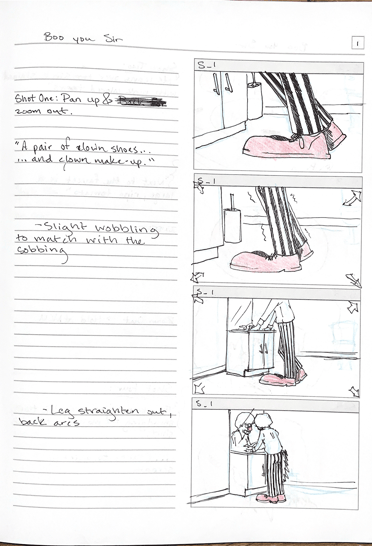 Boo you Sir
1
S_1
Shot One: Pan up &
zoom out.
"A pair of clown shoes...
... and clown make-up."
S_1
-Slight wobbling
to match with the
sobbing
S_1
-Leg straighten out,
back arcs
S_1